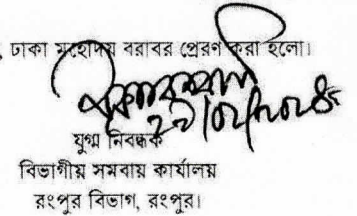 , ঢাকা মহোদয় বরাবর প্রেরণ করা হলো।
যুগ্ম নিবন্ধক
বিভাগীয় সমবায় কার্যালয়
রংপুর বিভাগ, রংপুর।